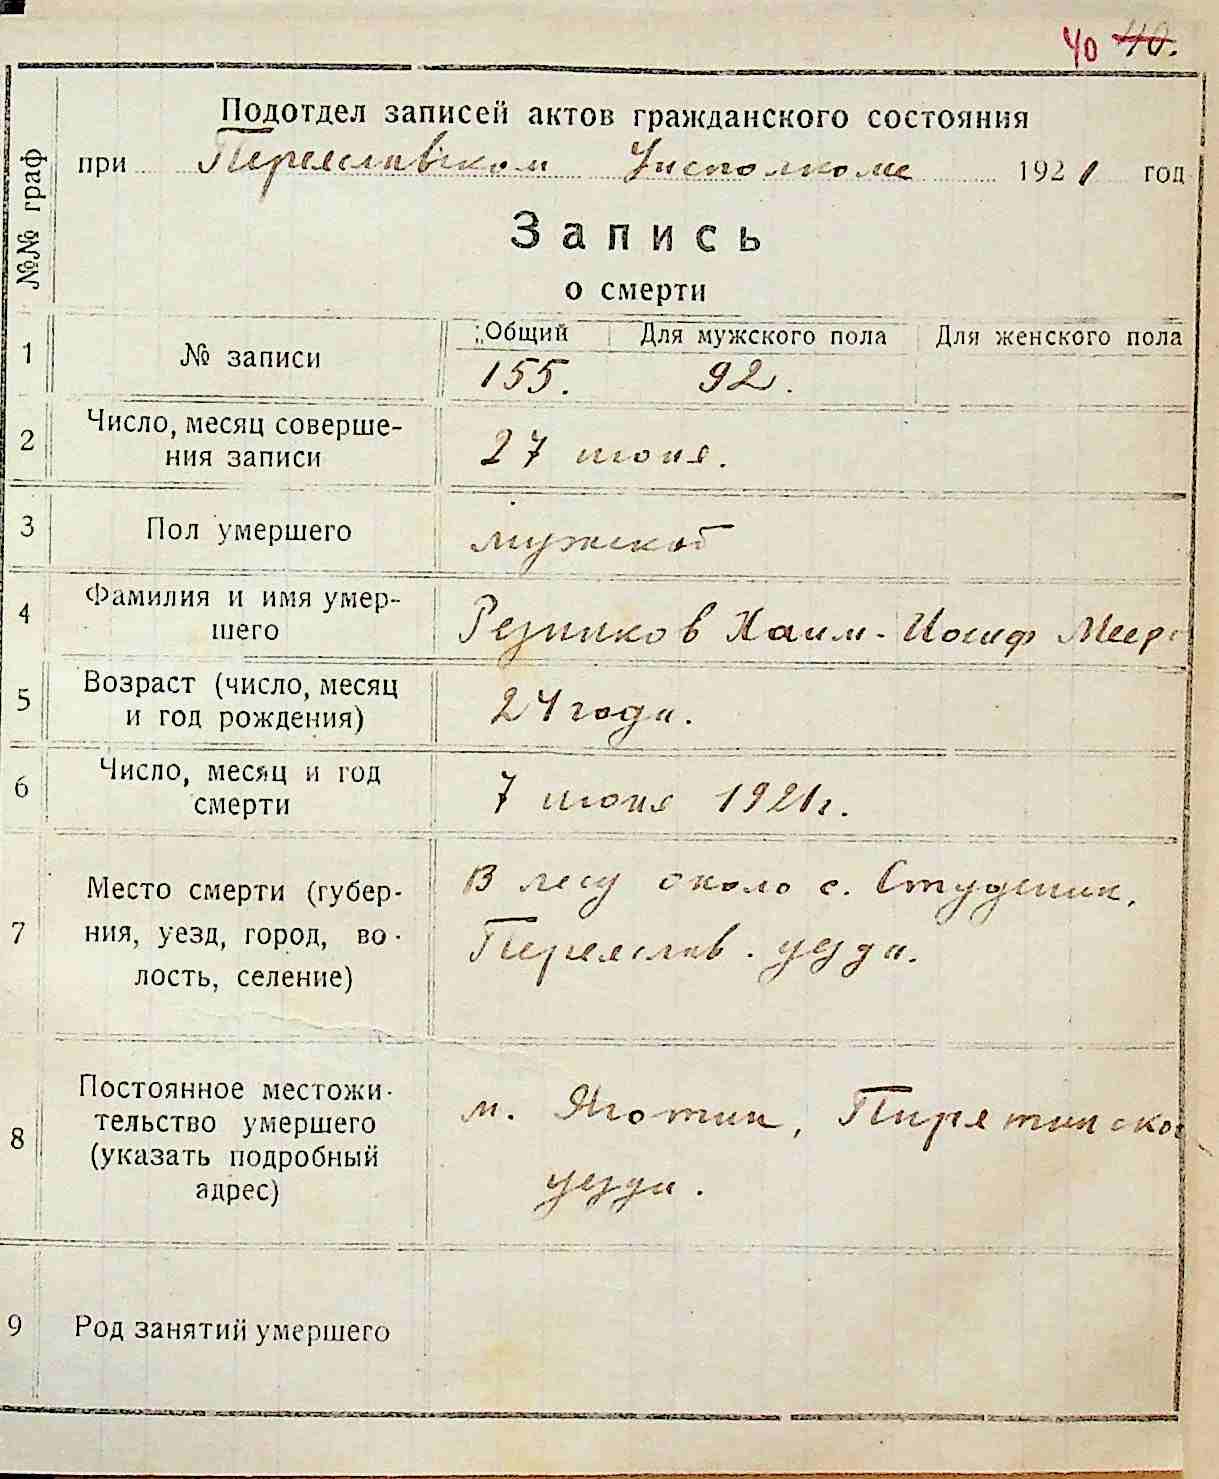 40 40.
Подотдел записей актов гражданского состояния
№№ граф
при Переяславском Уисполкоме 1921 год
Запись
о смерти
1 № записи Общий Для мужского пола Для женского пола
155. 92.
2 Число, месяц соверше-
ния записи
27 июня.
3 Пол умершего мужской
4 Фамилия и имя умер-
шего
Резников Хаим-Иосиф Меер
5 Возраст (число, месяц
и год рождения)
24 года.
6 Число, месяц и год
смерти
7 июня 1921г.
7 Место смерти (губер-
ния, уезд, город, во-
лость, селение)
В лесу около с. Студеник,
Переяслав. уезда.
8 Постоянное местожи-
тельство умершего
(указать подробный
адрес)
м. Яготин, Пирятинског
уезда.
9 Род занятий умершего